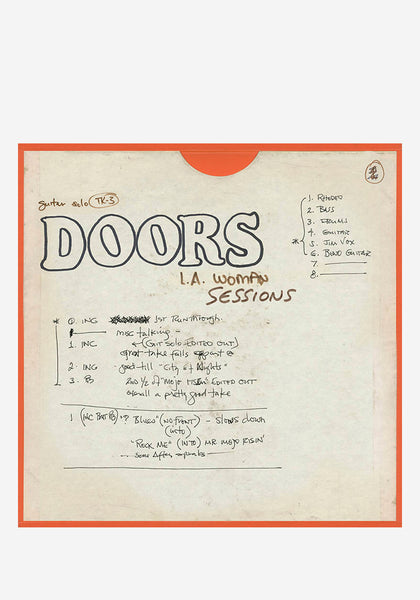 guitar solo TK-3
DOORS
L.A. WOMAN
SESSIONS
1. RHODEO
2. BASS
3. DRUMS
4. GUITAR
* 5. JIM VOX
6. BEND GUITAR
7.
8.
* 0. INC 1ST RUN THROUGH.
MISC talking -
1. INC (GIT SOLO EDITED OUT)
great take falls apart @
2. INC - good - till "City of Nights"
3. B 2ND 1/2 of "MOJO RISIN" EDITED OUT
overall a pretty good take
1 (INC BUT B) "? BLUES" (NO FRONT) - SLOWS DOWN
(INTO)
"ROCK ME" (INTO) MR MOJO RISIN'
some After